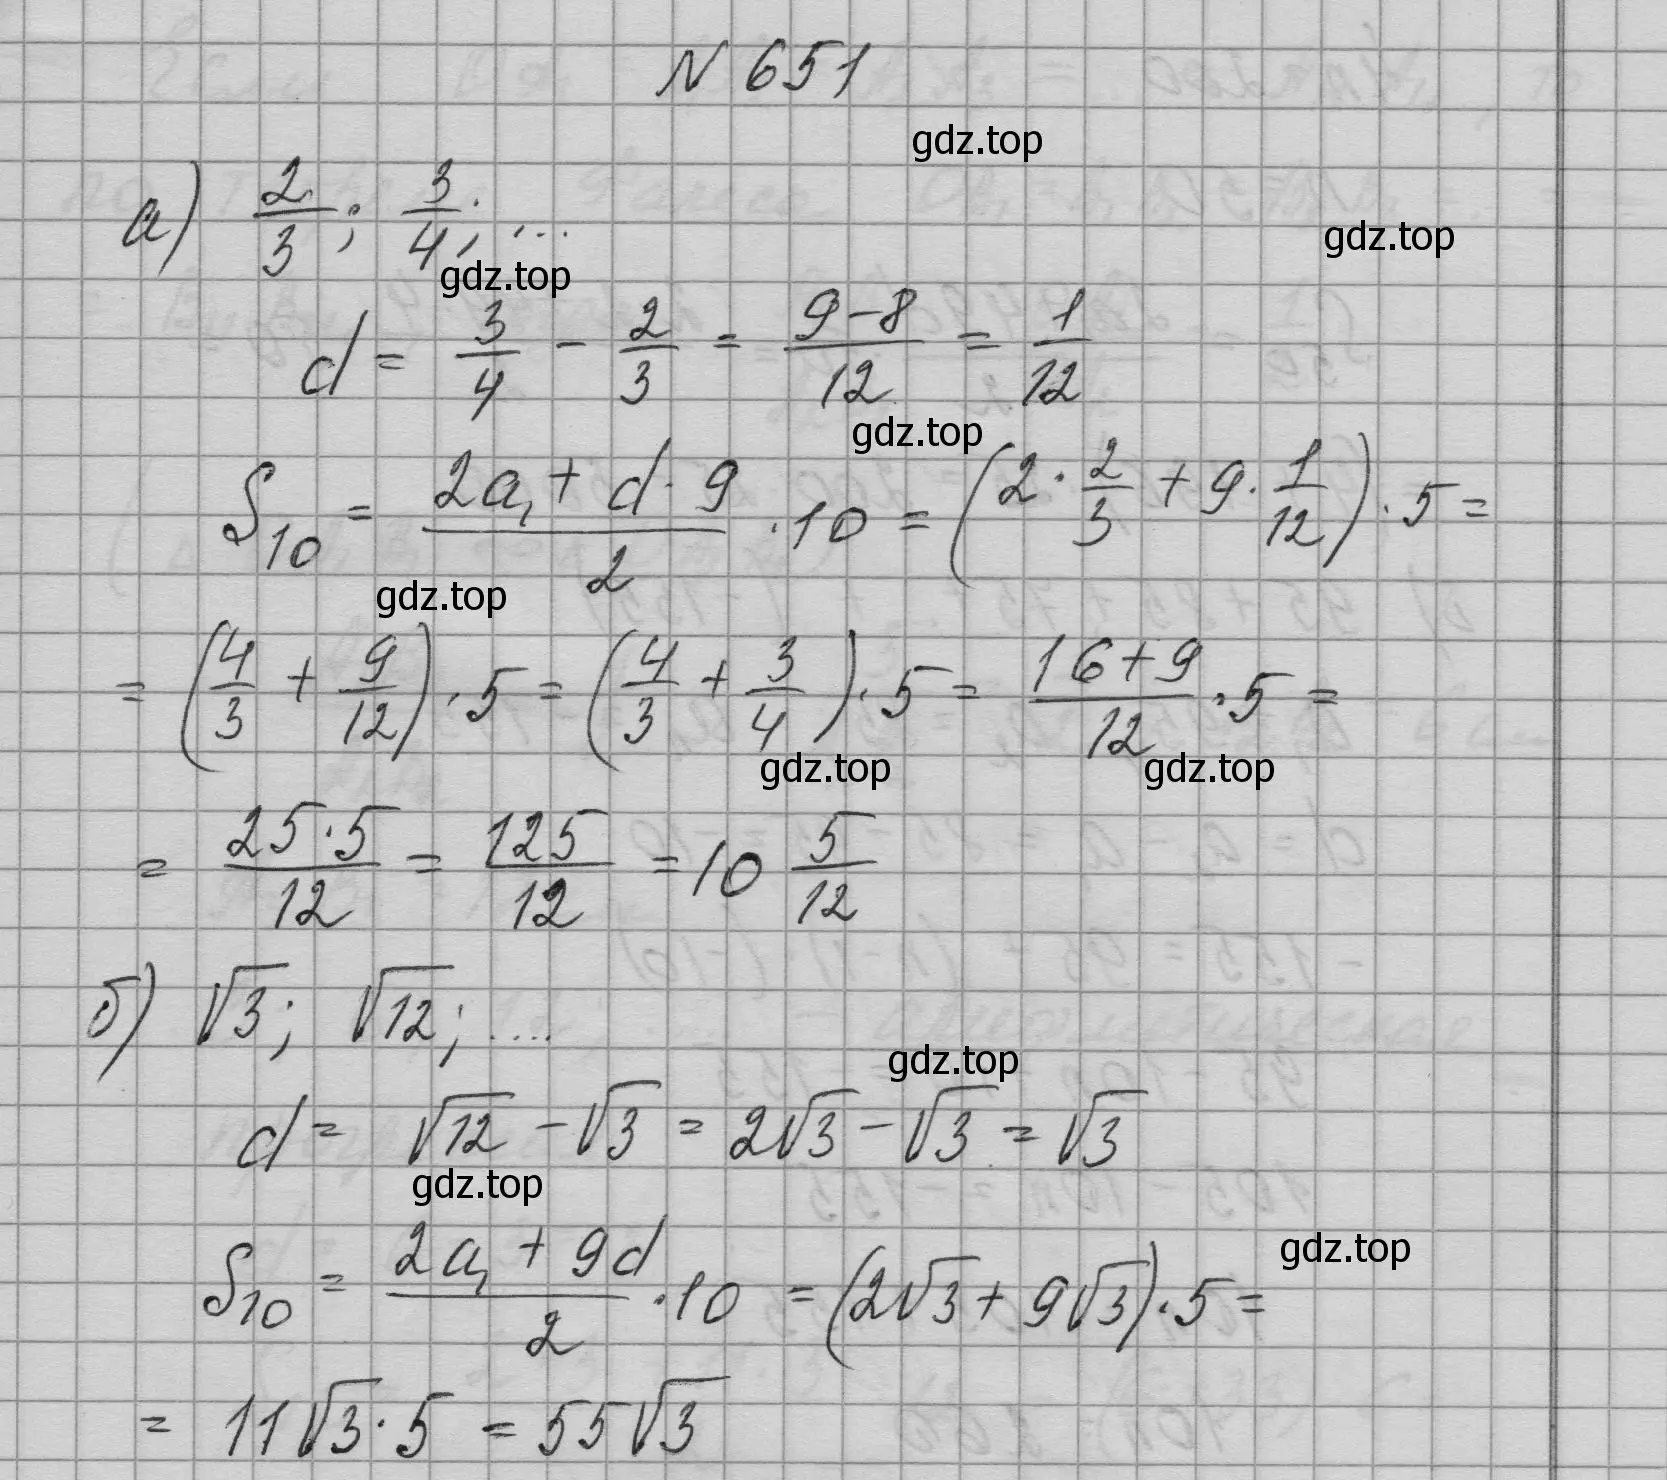 N 651
gdz.top
а) 2/3; 3/4; ...
gdz.top
gdz.top
d = 3/4 - 2/3 = (9-8)/12 = 1/12
gdz.top
S₁₀ = (2a₁ + d · 9)/2 · 10 = (2 · 2/3 + 9 · 1/12) · 5 =
gdz.top
= (4/3 + 9/12) · 5 = (4/3 + 3/4) · 5 = (16+9)/12 · 5 =
gdz.top gdz.top
= (25·5)/12 = 125/12 = 10 5/12
б) √3; √12; ....
gdz.top
d = √12 - √3 = 2√3 - √3 = √3
gdz.top
gdz.top
S₁₀ = (2a₁ + 9d)/2 · 10 = (2√3 + 9√3) · 5 =
= 11√3 · 5 = 55√3